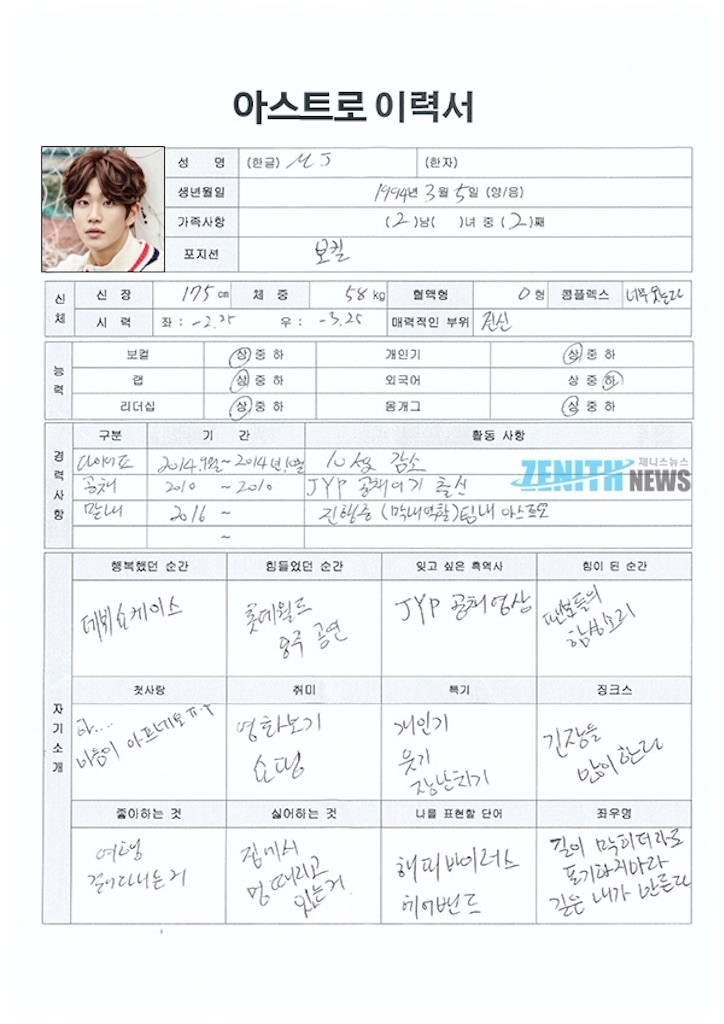 아스트로 이력서
성 명 (한글) MJ (한자)
생년월일 1994년 3월 5일 (양/음)
가족사항 (2)남( )녀 중 (2)째
포지션 보컬
신체
신 장 175cm 체 중 58kg 혈액형 O형 콤플렉스 너무 웃는다
시 력 좌 : -2.25 우 : -3.25 매력적인 부위 전신
능력
보컬 상 중 하 개인기 상 중 하
랩 상 중 하 외국어 상 중 하
리더십 상 중 하 몸개그 상 중 하
경력사항
구분 기 간 활동 사항
다이어트 2014.9월~2014년.10월 10kg 감소
공채 2010 ~ 2010 JYP 공채 출신
막내 2016 ~ 진행중 (막내역할) 팀내 아스트로
~
제니스뉴스
ZENITH NEWS
자기소개
행복했던 순간 힘들었던 순간 잊고 싶은 흑역사 힘이 된 순간
데뷔쇼케이스
롯데월드
8주 공연
JYP 공채영상
팬분들의
함성소리
첫사랑 취미 특기 징크스
하....
마음이 아프네요ㅠㅜ
영화보기
쇼핑
개인기
웃기
장난치기
긴장을
많이한다
좋아하는 것 싫어하는 것 나를 표현할 단어 좌우명
여행
걸어다니는거
집에서
멍때리고
있는거.
해피바이러스
헤어밴드
길이 막히더라도
포기하지마라
길은 내가 만든다